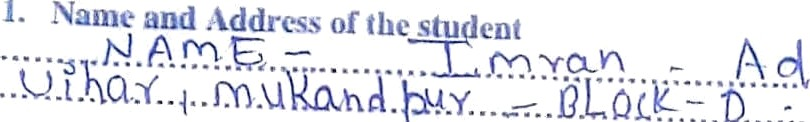 1. Name and Address of the student
NAME - Imran - Ad
Vihar, mukandpur - BLOCK - D